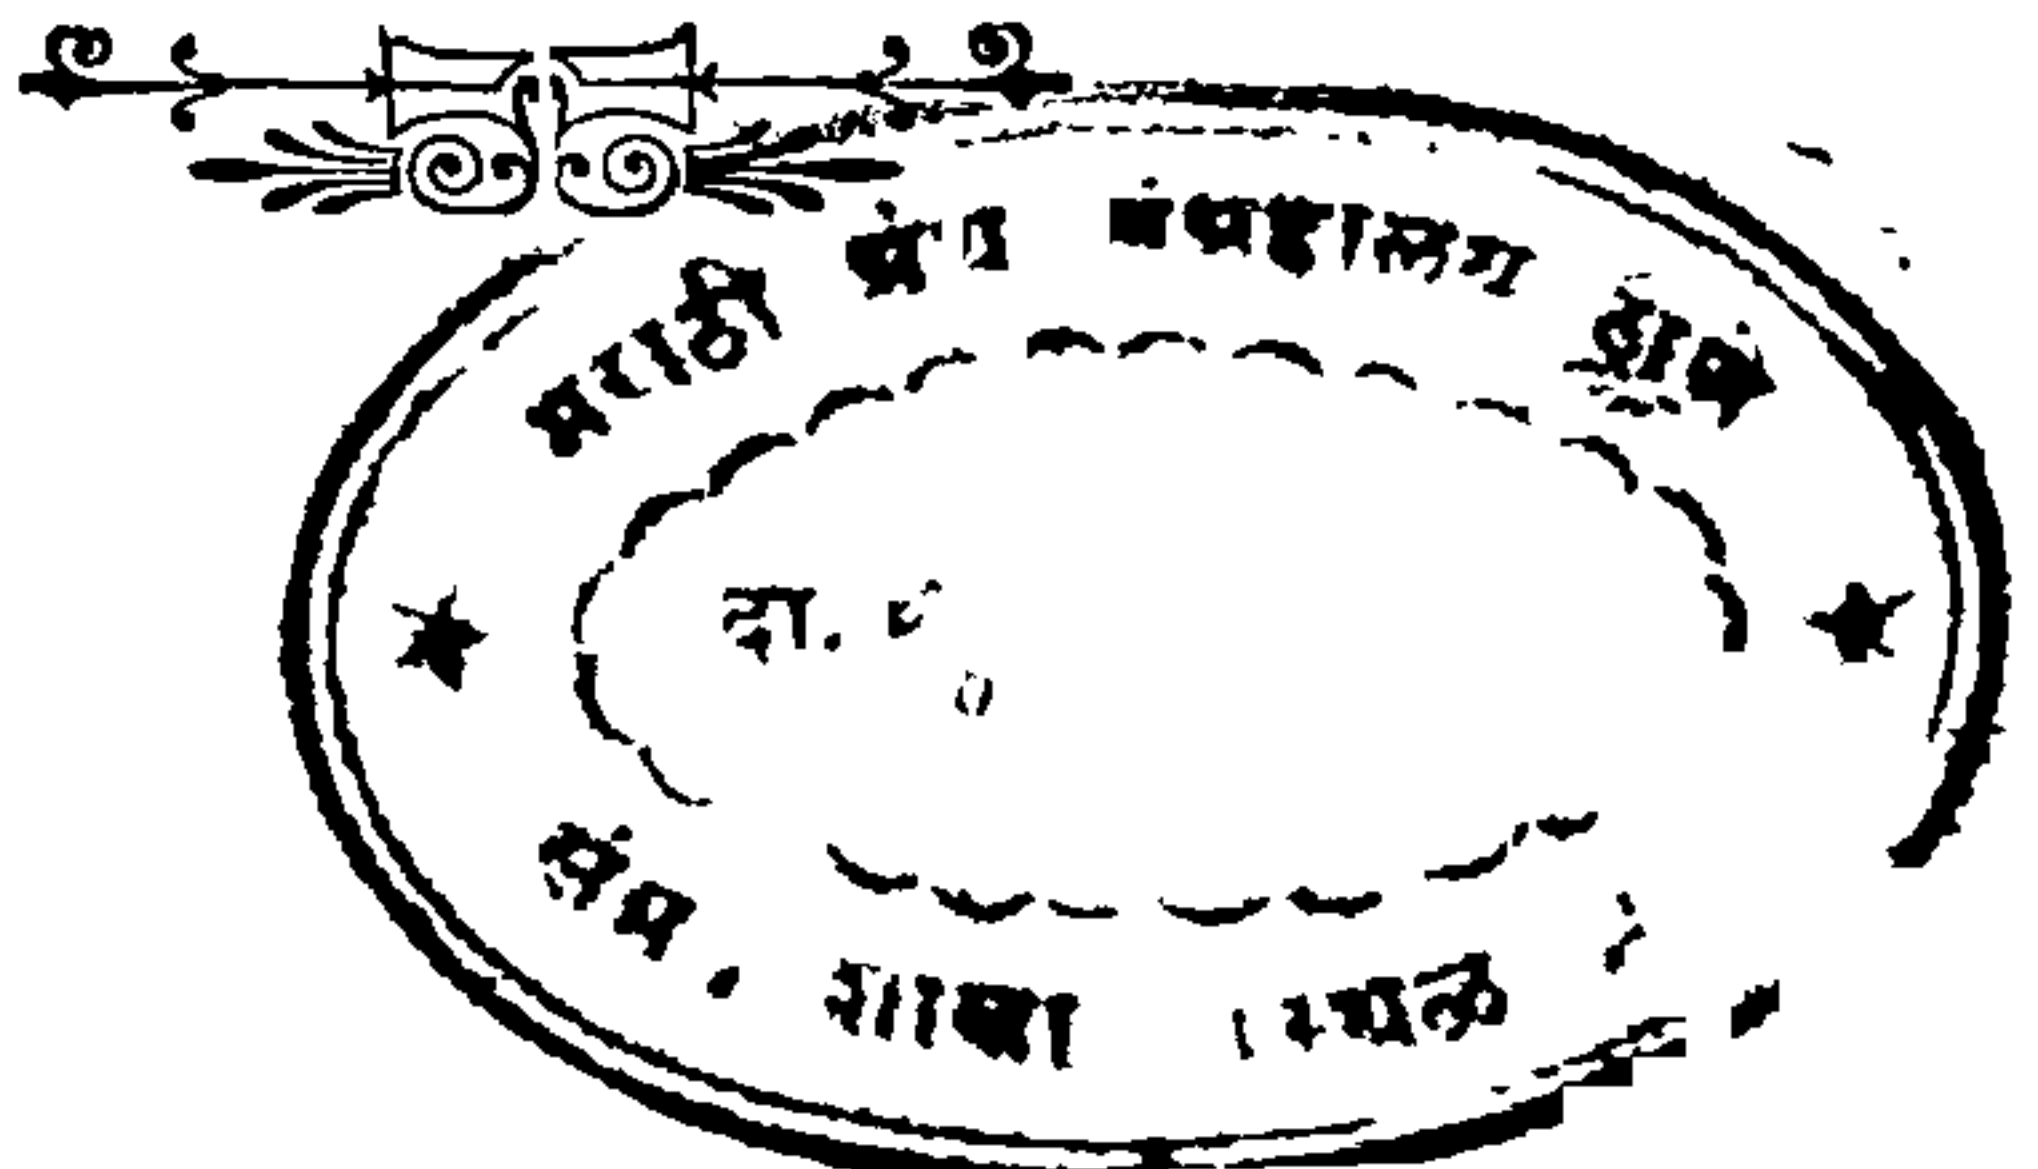 मराठी ग्रंथ संग्रहालय ठाणे
दा.
शाखा स्थळ